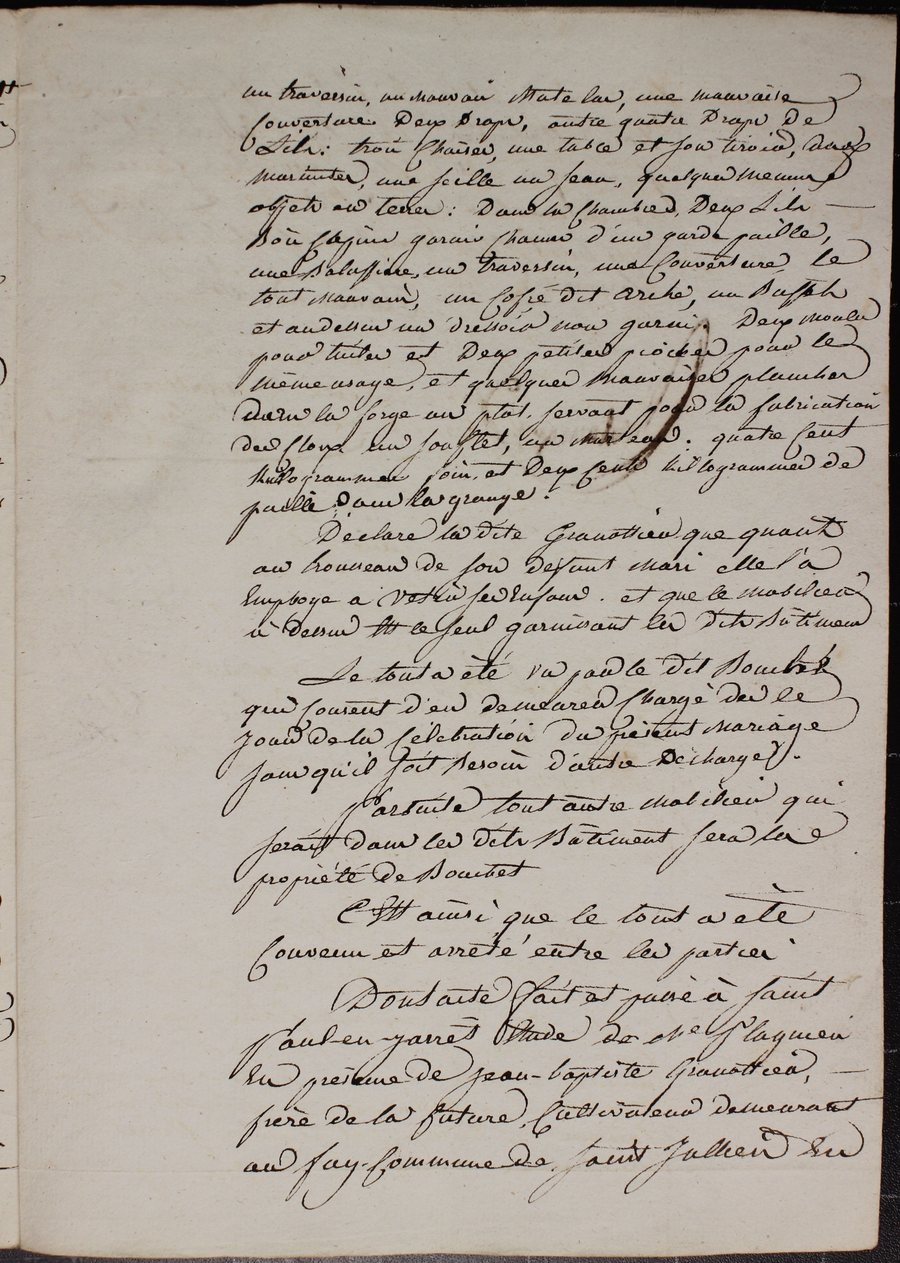 un traversin, un mauvais Matelas, une mauvaise
Couverture Deux Draps, autre quatre Draps de
Lits: trois Chaises, une table et son tiroir, deux
une seille un seau, quelques menus
objets en terre: Dans la Chambre, Deux Lits —
Bois Sapin garni Chacun d'un garde paille,
une Balassiere, un traversin, une Couverture, le
tout Mauvais, un Cofre dit arche, un Buffet
et audessus un dressoir non garni. Deux
pour et Deux petites pioches pour le
même usage, et quelques Mauvaises planches
dans la forge un servant pour la fabrication
des Cloux un souflet, un Marteau. quatre Cent
Kilogrammes foin, et Deux Cents Killogrammes de
paille Dans la grange.
Déclare la dite Granottier que quant
au trousseau de son defunt Mari elle l'a
Employe a Vetir ses Enfans. et que le Mobilier
ci dessus Est le seul garnissant les dits Bâtimens
Le tout a été vu par le dit Bombet
qui Consent d'en demeurer Chargé dès le
Jour de la Célébration du présent Mariage
sans qu'il soit Besoin d'autre Décharge.
Parsuite tout autre Mobilier qui
serait dans les dits Bâtiment sera la
propriété de Bombet
C'Est ainsi que le tout a été
Convenu et arrêté entre les parties
Dont acte fait et passé à Saint
Paul-en-jarrêt Etude de Me
En présence de Jean-baptiste Granottier, —
frère de la future, Cultivateur demeurant
au fay Commune de Saint Jullien En